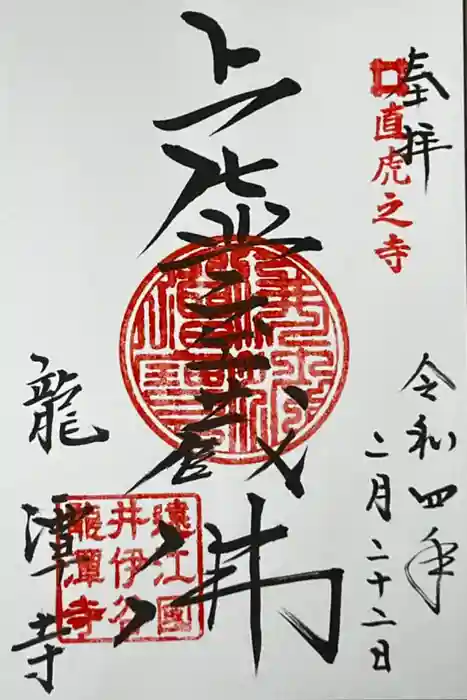 奉拝
直虎之寺
令和四年
二月二十二日
虚空蔵佛
龍潭寺
遠江國
井伊谷
龍潭寺